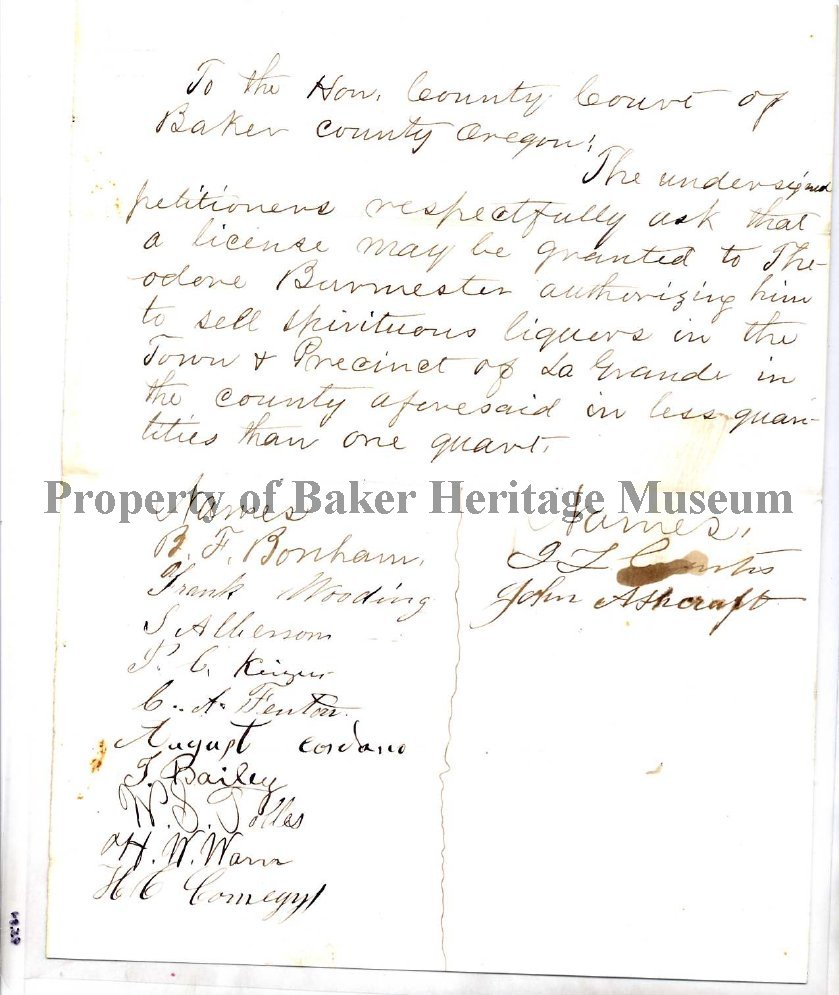 To the Hon. County Court of
Baker county Oregon;
The undersigned
petitioners respectfully ask that
a license may be granted to The-
odore Burmester authorizing him
to sell spirituous liquers in the
Town & Precinct of La Grande in
the county aforesaid in less quan-
tities than one quart.
Property of Baker Heritage Museum
Names
B. F. Bonham.
Frank Wooding
S Alberson
P. C. Keizur
C. A. Fenton.
August Cordano
T. Bailey
W. S. Tolles
H. W. Warn
H C Comegys
Names.
John Ashcraft
1939